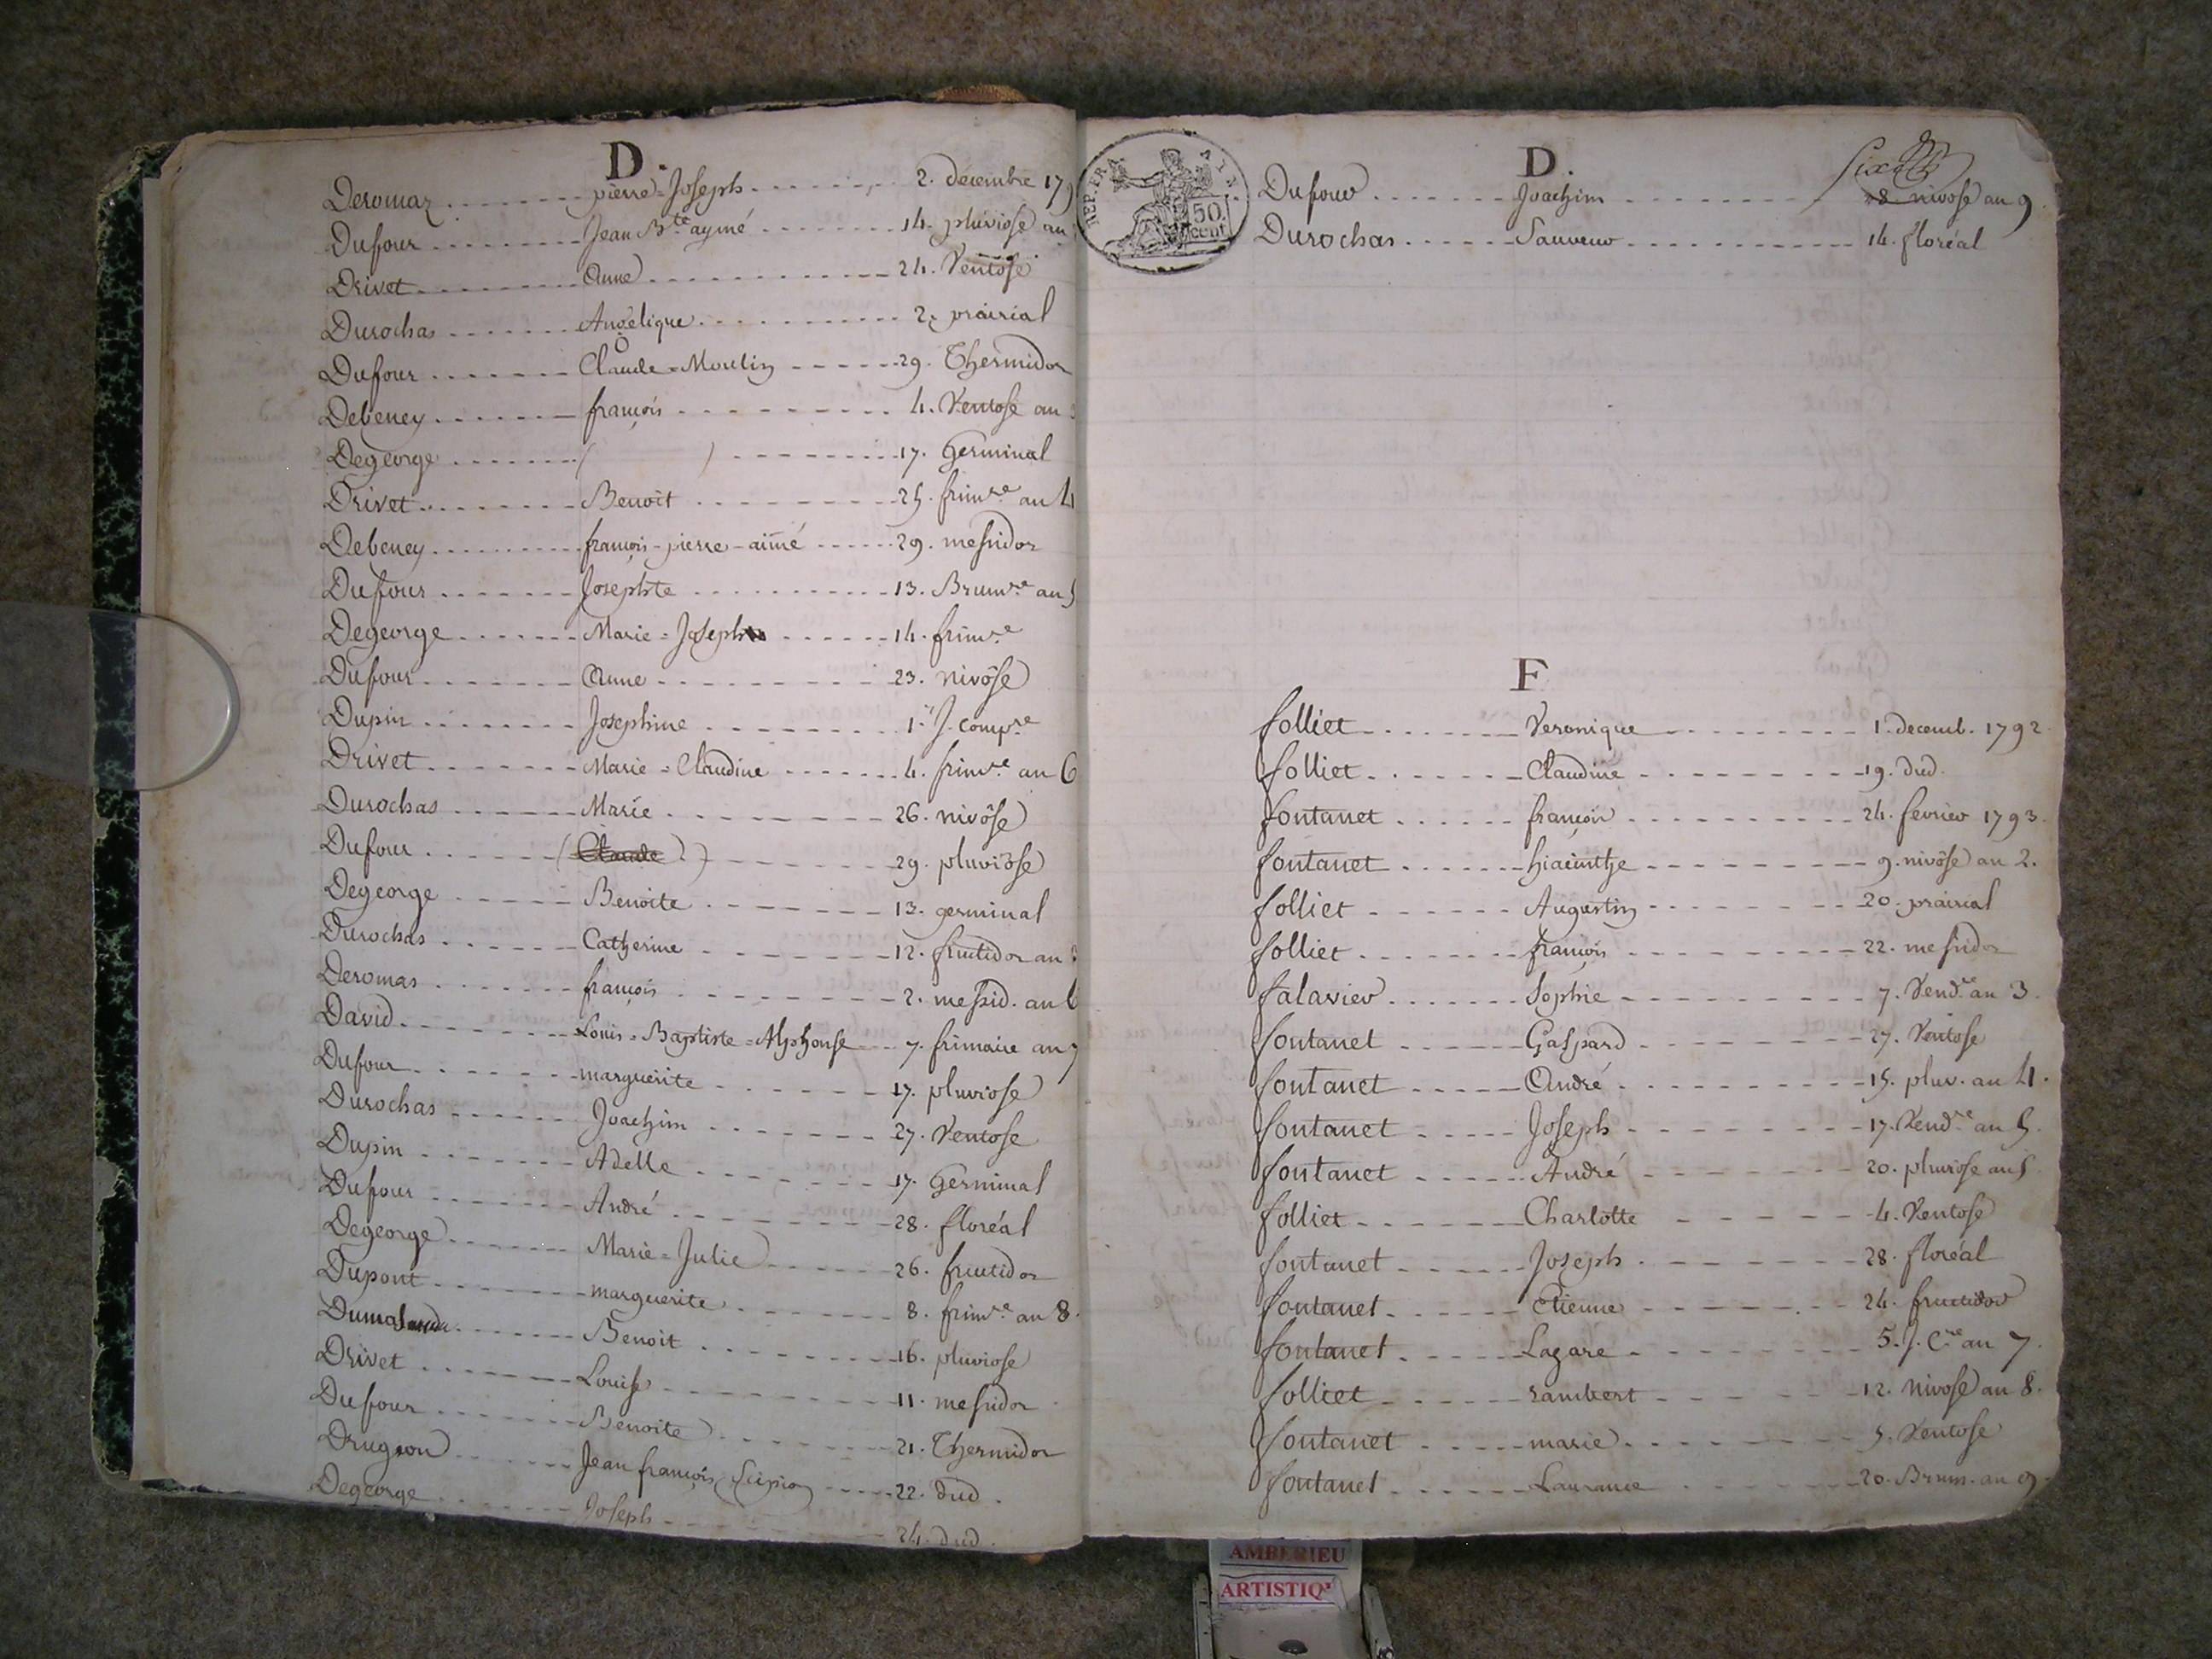 D.
Deromaz pierre=Joseph 2. décembre 179
Dufour Jean Bte aymé 14. pluviose an
Drivet Anne 24. Ventose
Durochas Angélique 2. prairial
Dufour Claude=Moulin 29. Thermidor
Debeney françois 4. Ventose an
Degeorge ( ) 17. Germinal
Drivet Benoit 25. frimre an 4
Debeney françois-pierre-aimé 29. messidor
Dufour Josephte 13. Brumre an 5
Degeorge Marie=Joseph 14. frimre
Dufour Anne 23. nivôse
Dupin Josephine 1er J. compre
Drivet Marie=Claudine 4. frimre an 6
Durochas Marie 26. nivôse
Dufour (Claude) 29. pluviôse
Degeorge Benoite 13. germinal
Durochas Catherine 12. fructidor an
Deromas françois 2. messid. an 6
David Louis=Baptiste=Alphonse 7. frimaire an 7
Dufour marguerite 17. pluviose
Durochas Joachim 27. Ventose
Dupin Adelle 17. Germinal
Dufour André 28. floréal
Degeorge Marie=Julie 26. fructidor
Dupont marguerite 8. frimre an 8.
Benoit 16. pluviose
Drivet Louise 11. messidor
Dufour Benoite 21. Thermidor
Drugeon Jean françois Scipion 22. dud.
Degeorge Joseph 24. dud.
REP. FRA.
50.
cent
D.
Six
Dufour Joachim 8. nivose an 9
Durochas Sauveur 14. floréal
F
folliet Veronique 1. decemb. 1792
folliet Claudine 19. dud.
fontanet françois 24. fevrier 1793.
fontanet hiacinthe 9. nivôse an 2.
folliet Augustin 20. prairial
folliet françois 22. messidor
falavier Sophie 7. Vendre an 3.
fontanet Gaspard 27. Ventose
fontanet André 15. pluv. an 4.
fontanet Joseph 17. Vendre an 5.
fontanet André 20. pluviose an 5.
folliet Charlotte 4. Ventose
fontanet Joseph 28. floréal
fontanet Etienne 24. fructidor
fontanet Lazare 5. J. Cre an 7.
folliet rambert 12. Nivose an 8.
fontanet marie 5. Ventose
fontanet Laurance 20. Brum. an 9.
AMBERIEU
ARTISTIQ